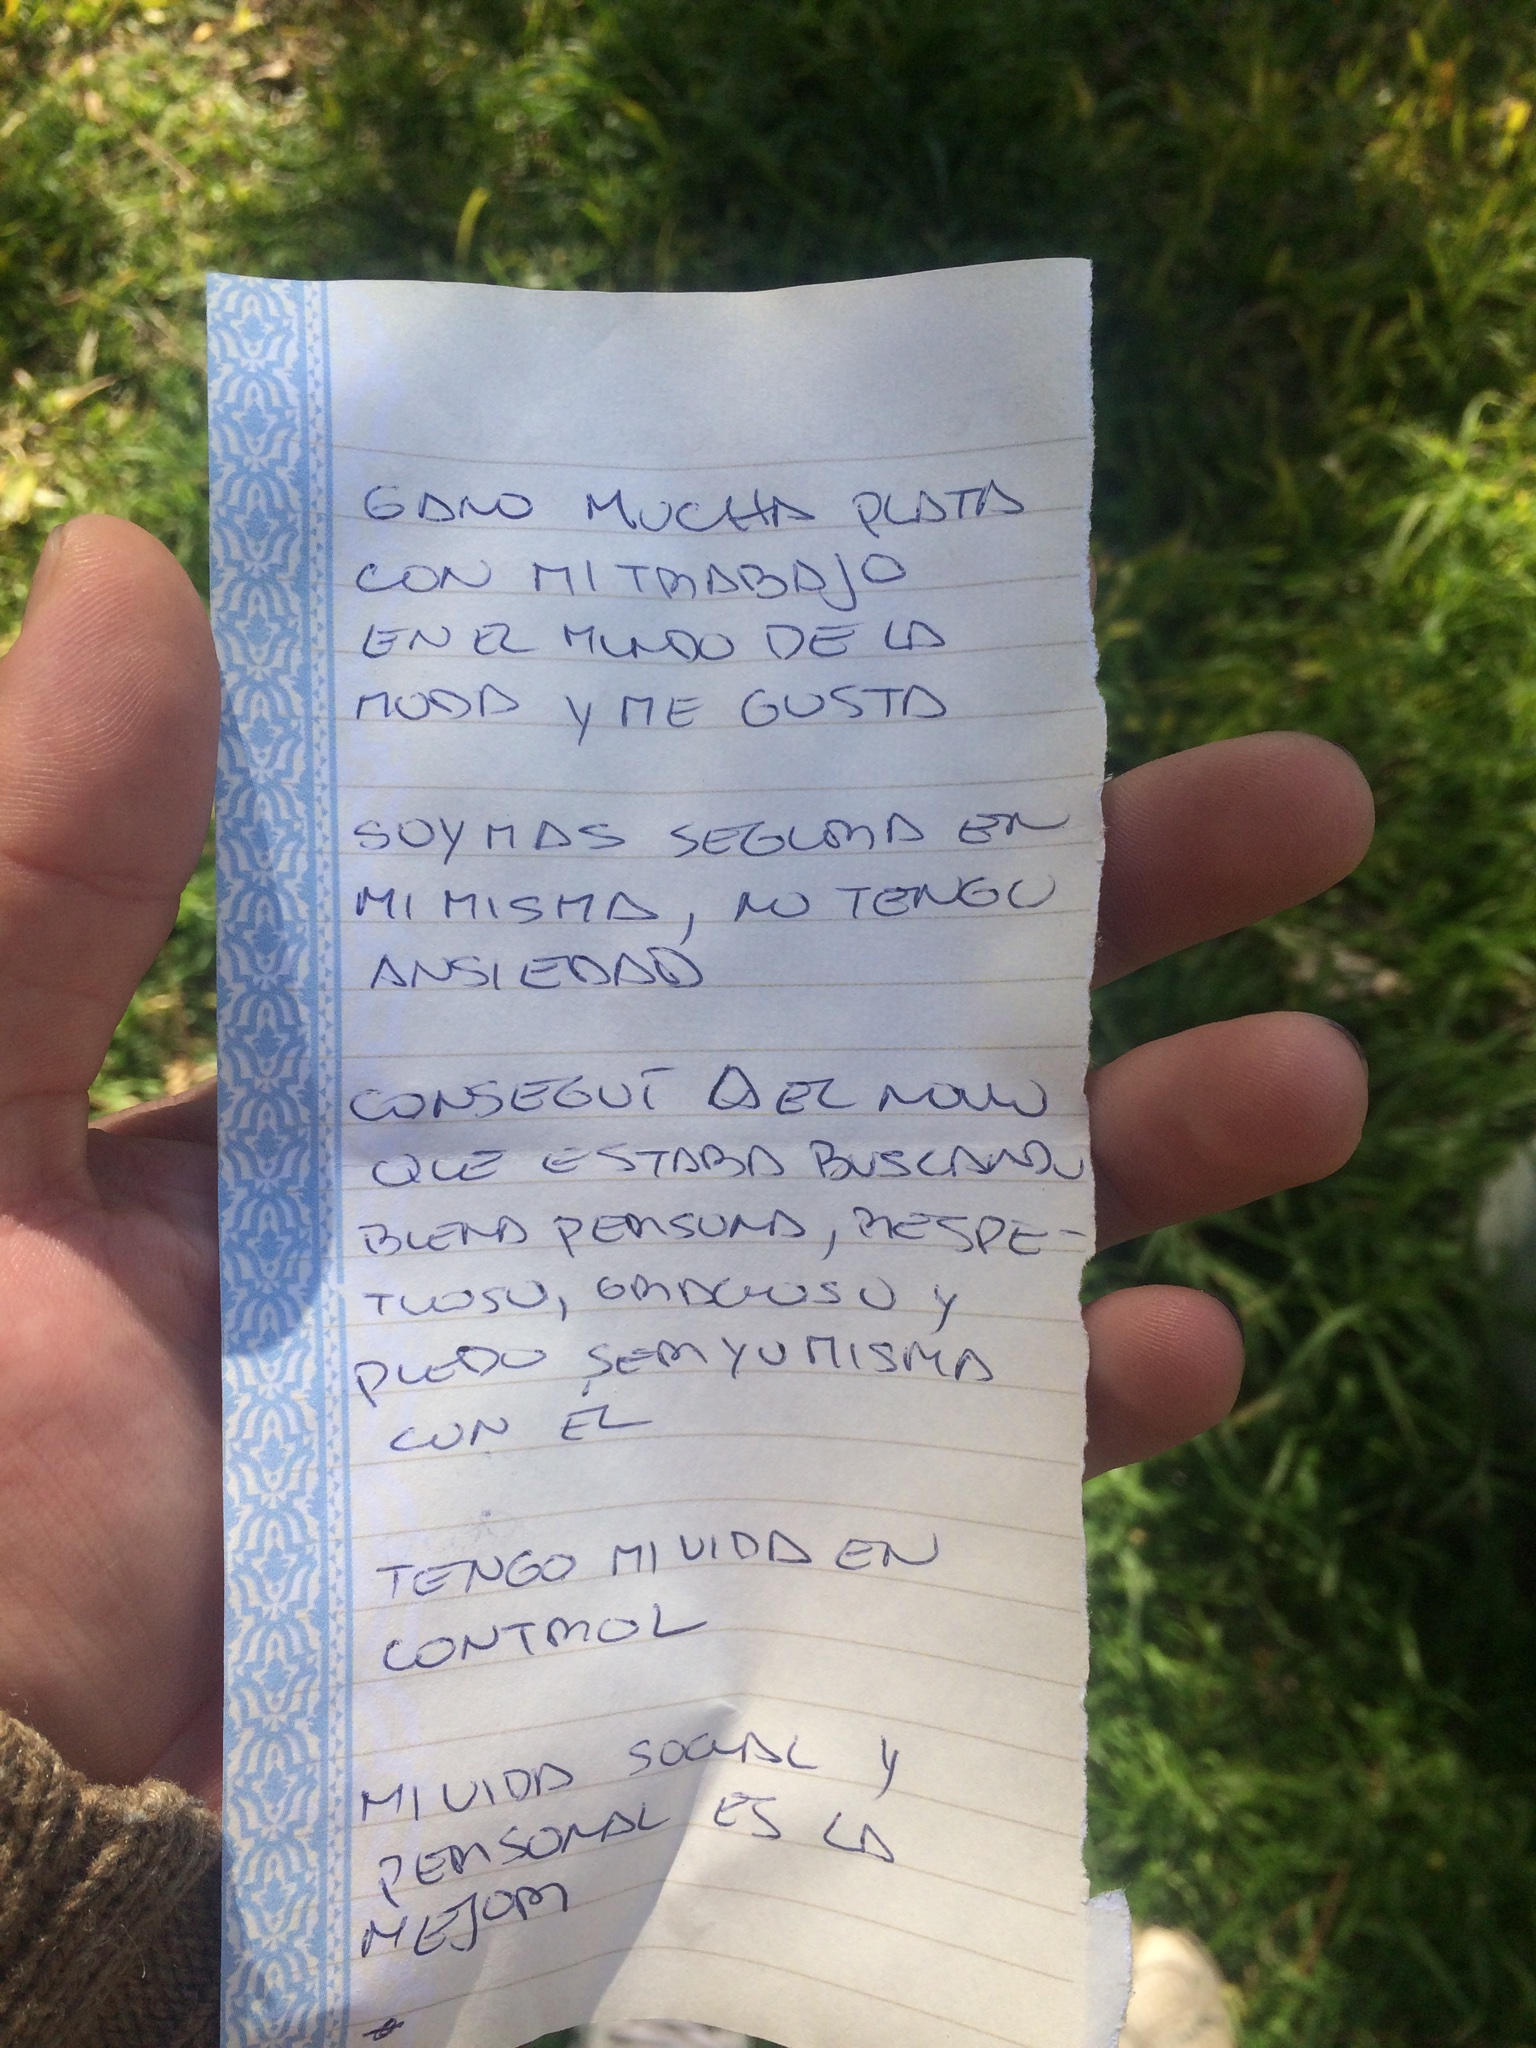 GANO MUCHA PLATA
CON MI TRABAJO
EN EL MUNDO DE LA
MODA Y ME GUSTA
SOY MAS SEGURA EN
MI MISMA, NO TENGO
ANSIEDAD
CONSEGUÍ A EL NOVIO
QUE ESTABA BUSCANDO
BUENA PERSONA, RESPE-
TUOSO, GRACIOSO Y
PUEDO SER YO MISMA
CON EL
TENGO MI VIDA EN
CONTROL
MI VIDA SOCIAL Y
PERSONAL ES LA
MEJOR